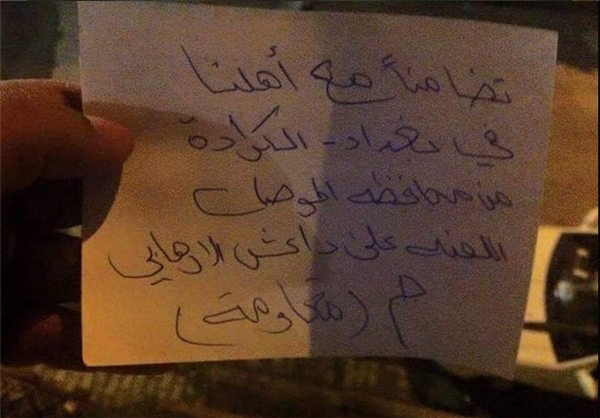 تضامناً مع أهلنا
في بغداد - الكرادة
من محافظة الموصل
اللعنه على داعش الارهابي
م (مقاومة)